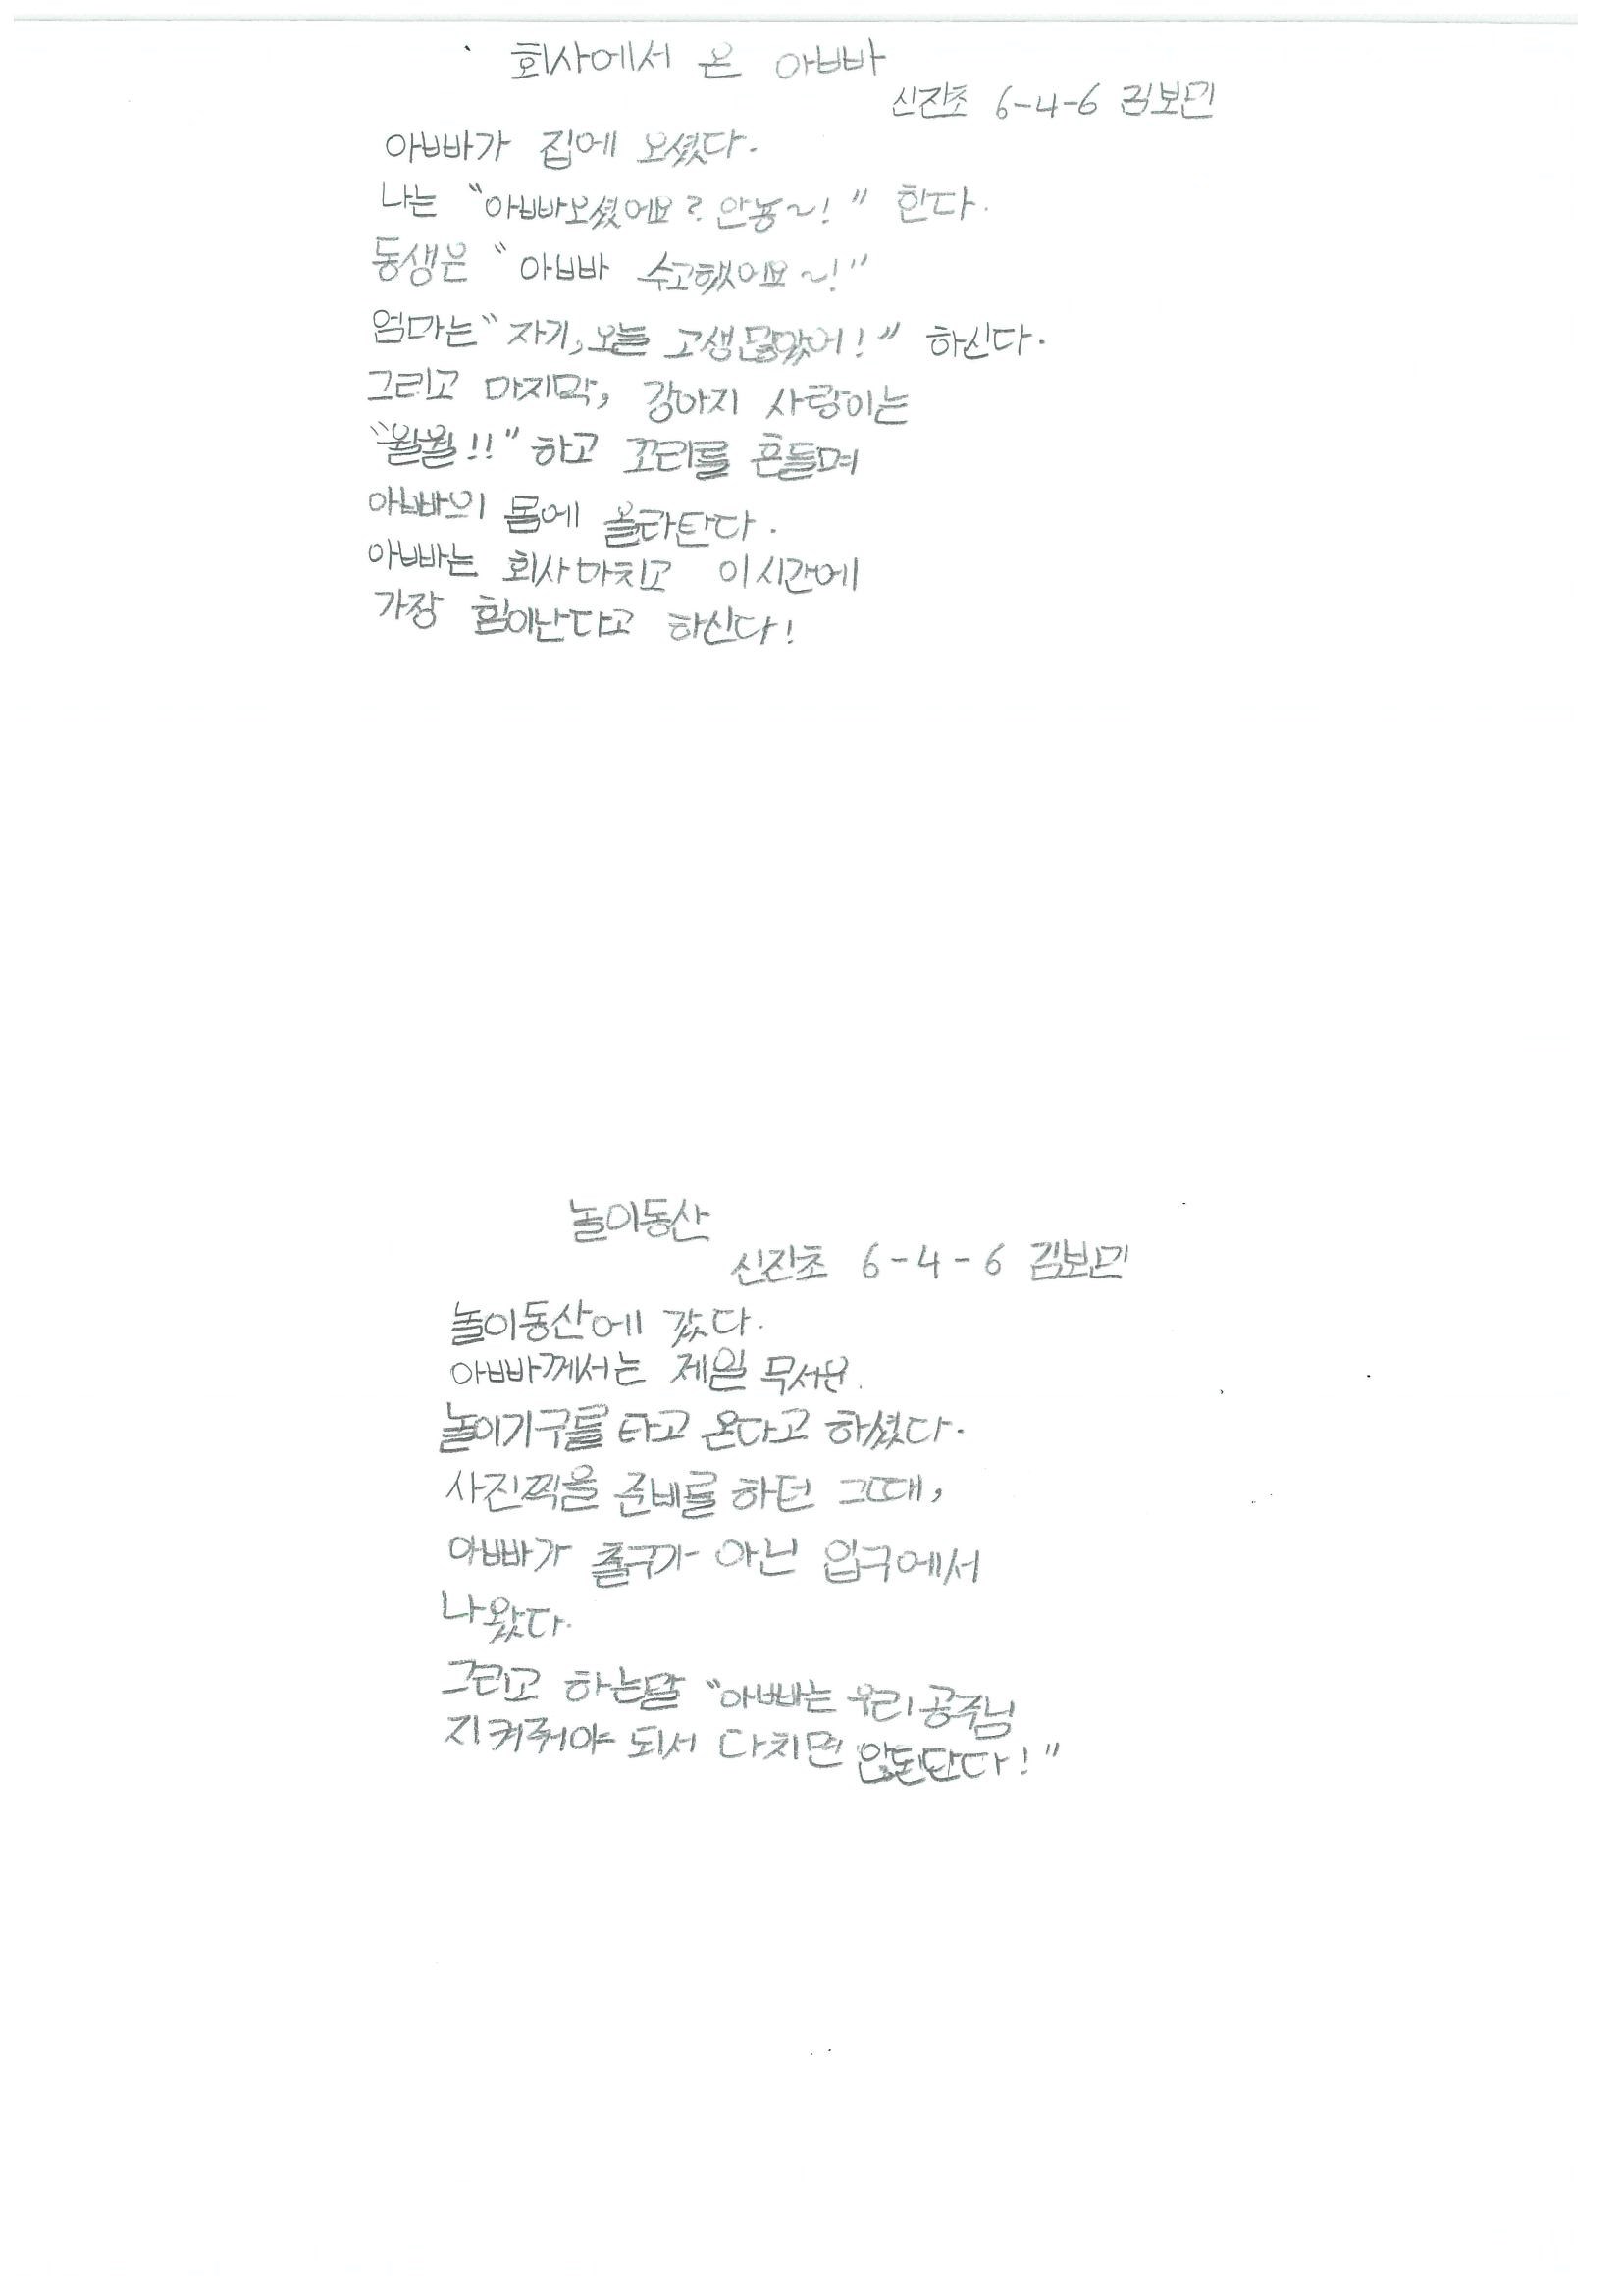 회사에서 온 아빠
신진초 6-4-6 김보민
아빠가 집에 오셨다.
나는 "아빠오셨어요? 안뇽~!" 한다.
동생은 "아빠 수고했어요~!"
엄마는 "자기, 오늘 고생많았어!" 하신다.
그리고 마지막, 강아지 사랑이는
"월월!!" 하고 꼬리를 흔들며
아빠의 몸에 올라탄다.
아빠는 회사마치고 이시간에
가장 힘이난다고 하신다!
놀이동산
신진초 6-4-6 김보민
놀이동산에 갔다.
아빠께서는 제일 무서운.
놀이기구를 타고 온다고 하셨다.
사진찍을 준비를 하던 그때,
아빠가 출구가 아닌 입구에서
나왔다.
그리고 하는말 "아빠는 우리 공주님
지켜줘야 되서 다치면 않된단다!"